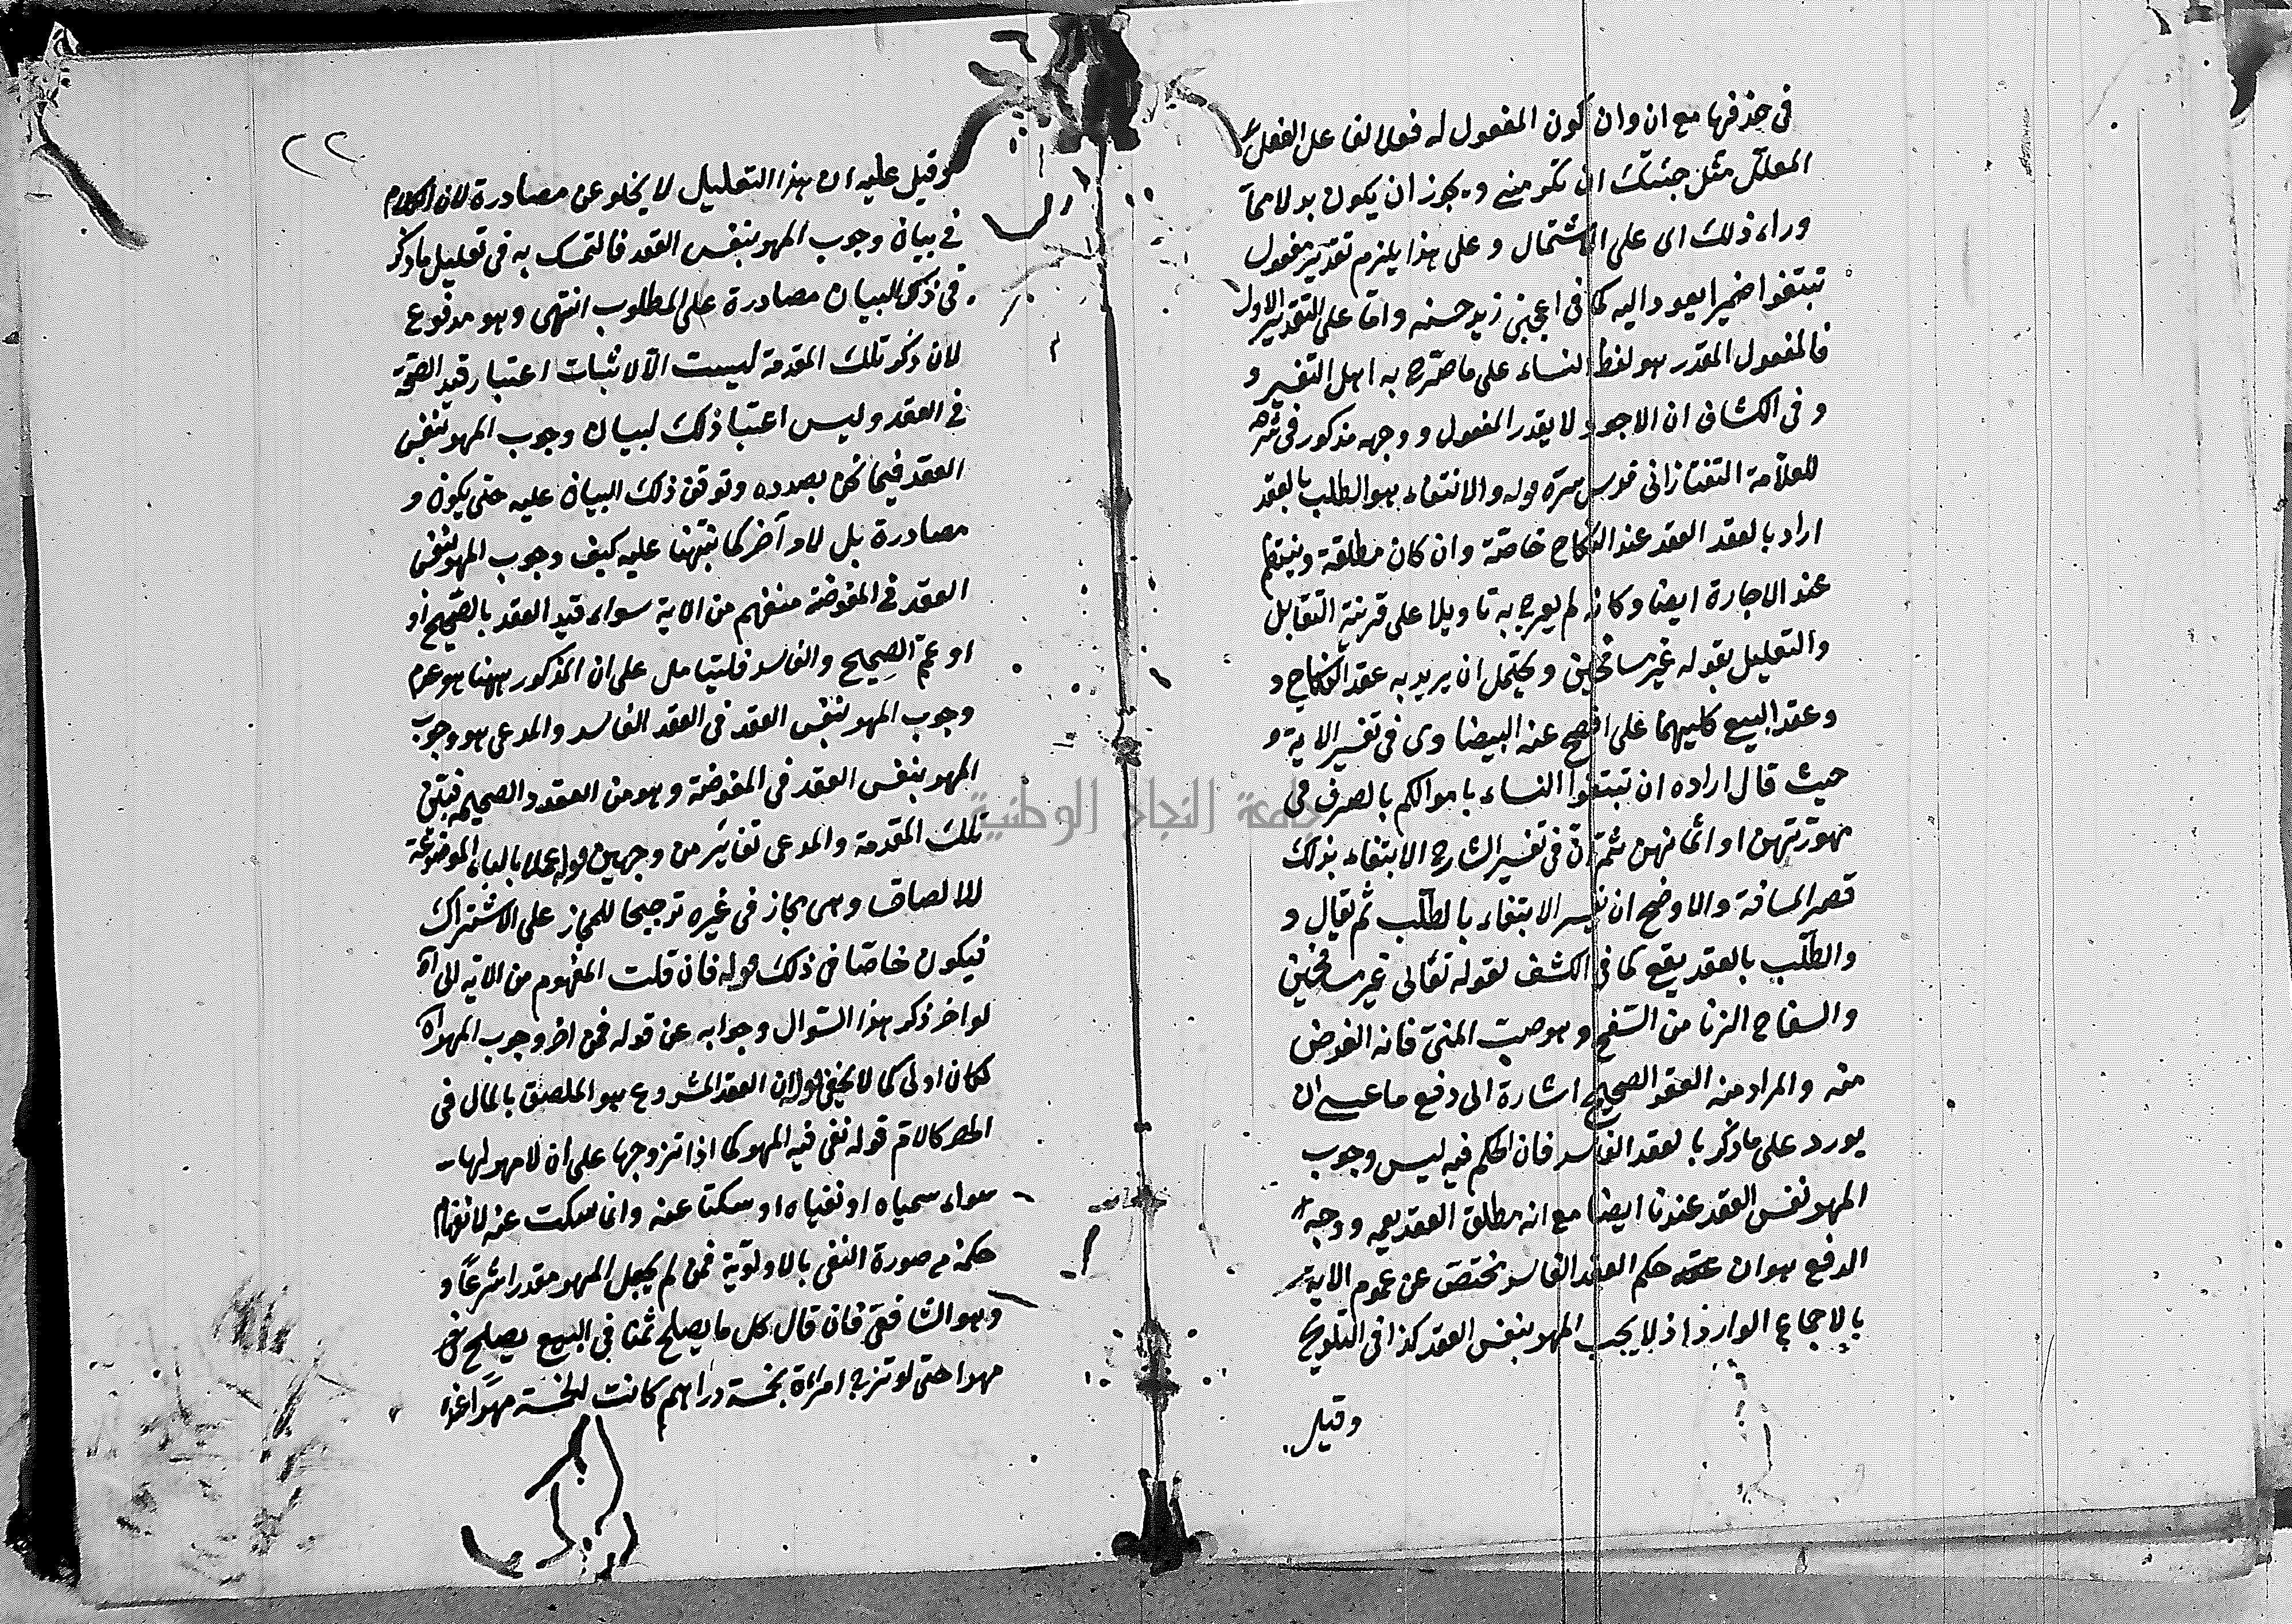 في حذفها مع ان وان كون المفعول له فعلا لفاعل الفعل
المعلل مثل جئتك ان تكرمني ويجوز ان يكون بدلا مما
وراء ذلك اي على الاشتمال وعلى هذا يلزم تقدير مفعول
تبتغوا ضميرا يعود اليه كما في اعجبني زيد حسنه واما على التقدير الاول
فالمفعول المقدر هو لفظ النساء على ما صرح به اهل التفسير و
و في الكشاف ان الاجود ان لا يقدر المفعول ووجهه مذكور في شرحه
للعلامة التفتازاني قدس سره قوله والابتغاء هو الطلب بالعقد
اراد بالعقد العقد عند النكاح خاصة وان كان مطلقة وينتظم
عند الاجارة ايضا وكانه لم يصرح به تاويلا على قرينة التقابل
والتعليل بقوله غير مسافحين ويحتمل ان يريد به عقد النكاح و
وعقد البيع كليهما على ما افصح عنه البيضاوي في تفسير الاية و
حيث قال ارادة ان تبتغوا النساء باموالكم بالصرف في
مهورهن او اثمانهن ثم ان في تفسير الشارح الابتغاء بذلك
قصر المسافة والاوضح ان يفسر الابتغاء بالطلب ثم يقال و
والطلب بالعقد يقع كما في الكشف لقوله تعالى غير مسافحين
والسفاح الزنا من السفح وهو صب المني فانه الغرض
منه والمراد منه العقد الصحيح اشارة الى دفع ما عسى ان
يورد على ما ذكر بالعقد الفاسد فان الحكم فيه ليس وجوب
المهر بنفس العقد عندنا ايضا مع انه مطلق العقد يعمه ووجه
الدفع هو ان حكم العقد الفاسد مختص عن عموم الاية
بالاجماع الوارد اذ لا يجب المهر بنفس العقد كذا في التلويح
وقيل
٢٢
وقيل عليه ان هذا التعليل لا يخلو عن مصادرة لان الكلام
في بيان وجوب المهر بنفس العقد فالتمسك به في تعليل ما ذكر
في ذكر البيان مصادرة على المطلوب انتهى وهو مدفوع
لان ذكر تلك المقدمة ليست الا لاثبات اعتبار قيد الصحة
في العقد وليس اعتبا ذلك لبيان وجوب المهر بنفس
العقد فيما نحن بصدده وتوقف ذلك البيان عليه حتى يكون و
مصادرة بل لامر آخر كما نبهنا عليه كيف وجوب المهر بنفس
العقد في المفوضة منفهم من الاية سواء قيد العقد بالصحيح او
او عم الصحيح والفاسد فليتامل على ان المذكور ههنا هو عدم
وجوب المهر بنفس العقد في العقد الفاسد والمدعى هو وجوب
المهر بنفس العقد في المفوضة وهو من العقود الصحيحة فبين
تلك المقدمة والمدعى تغاير من وجهين قوله عملا بالباء الموضوعة
للالصاق وهي مجاز في غيره ترجيحا للمجاز على الاشتراك
فيكون خاصا في ذلك قوله فان قلت المفهوم من الاية الى اه
لو اخر ذكر هذا السؤال وجوابه عن قوله فمن اخر وجوب المهر اه
لكان اولى كما لا يخفى قوله ان العقد المشروع هو الملصق بالمال في
الحصر كلام قوله نفي فيه المهر كما اذا تزوجها على ان لا مهر لها
سواء سمياه او نفياه او سكتا عنه وان سكت عنه لانفهام
حكمه من صورة النفي بالاولوية فمن لم يجعل المهر مقدرا شرعا و
وهو الشافعي فان قال كل ما يصلح ثمنا في البيع يصلح
مهرا حتى لو تزوج امراة بخمسة دراهم كانت الخمسة مهرا عنده
جامعة النجاح الوطنية